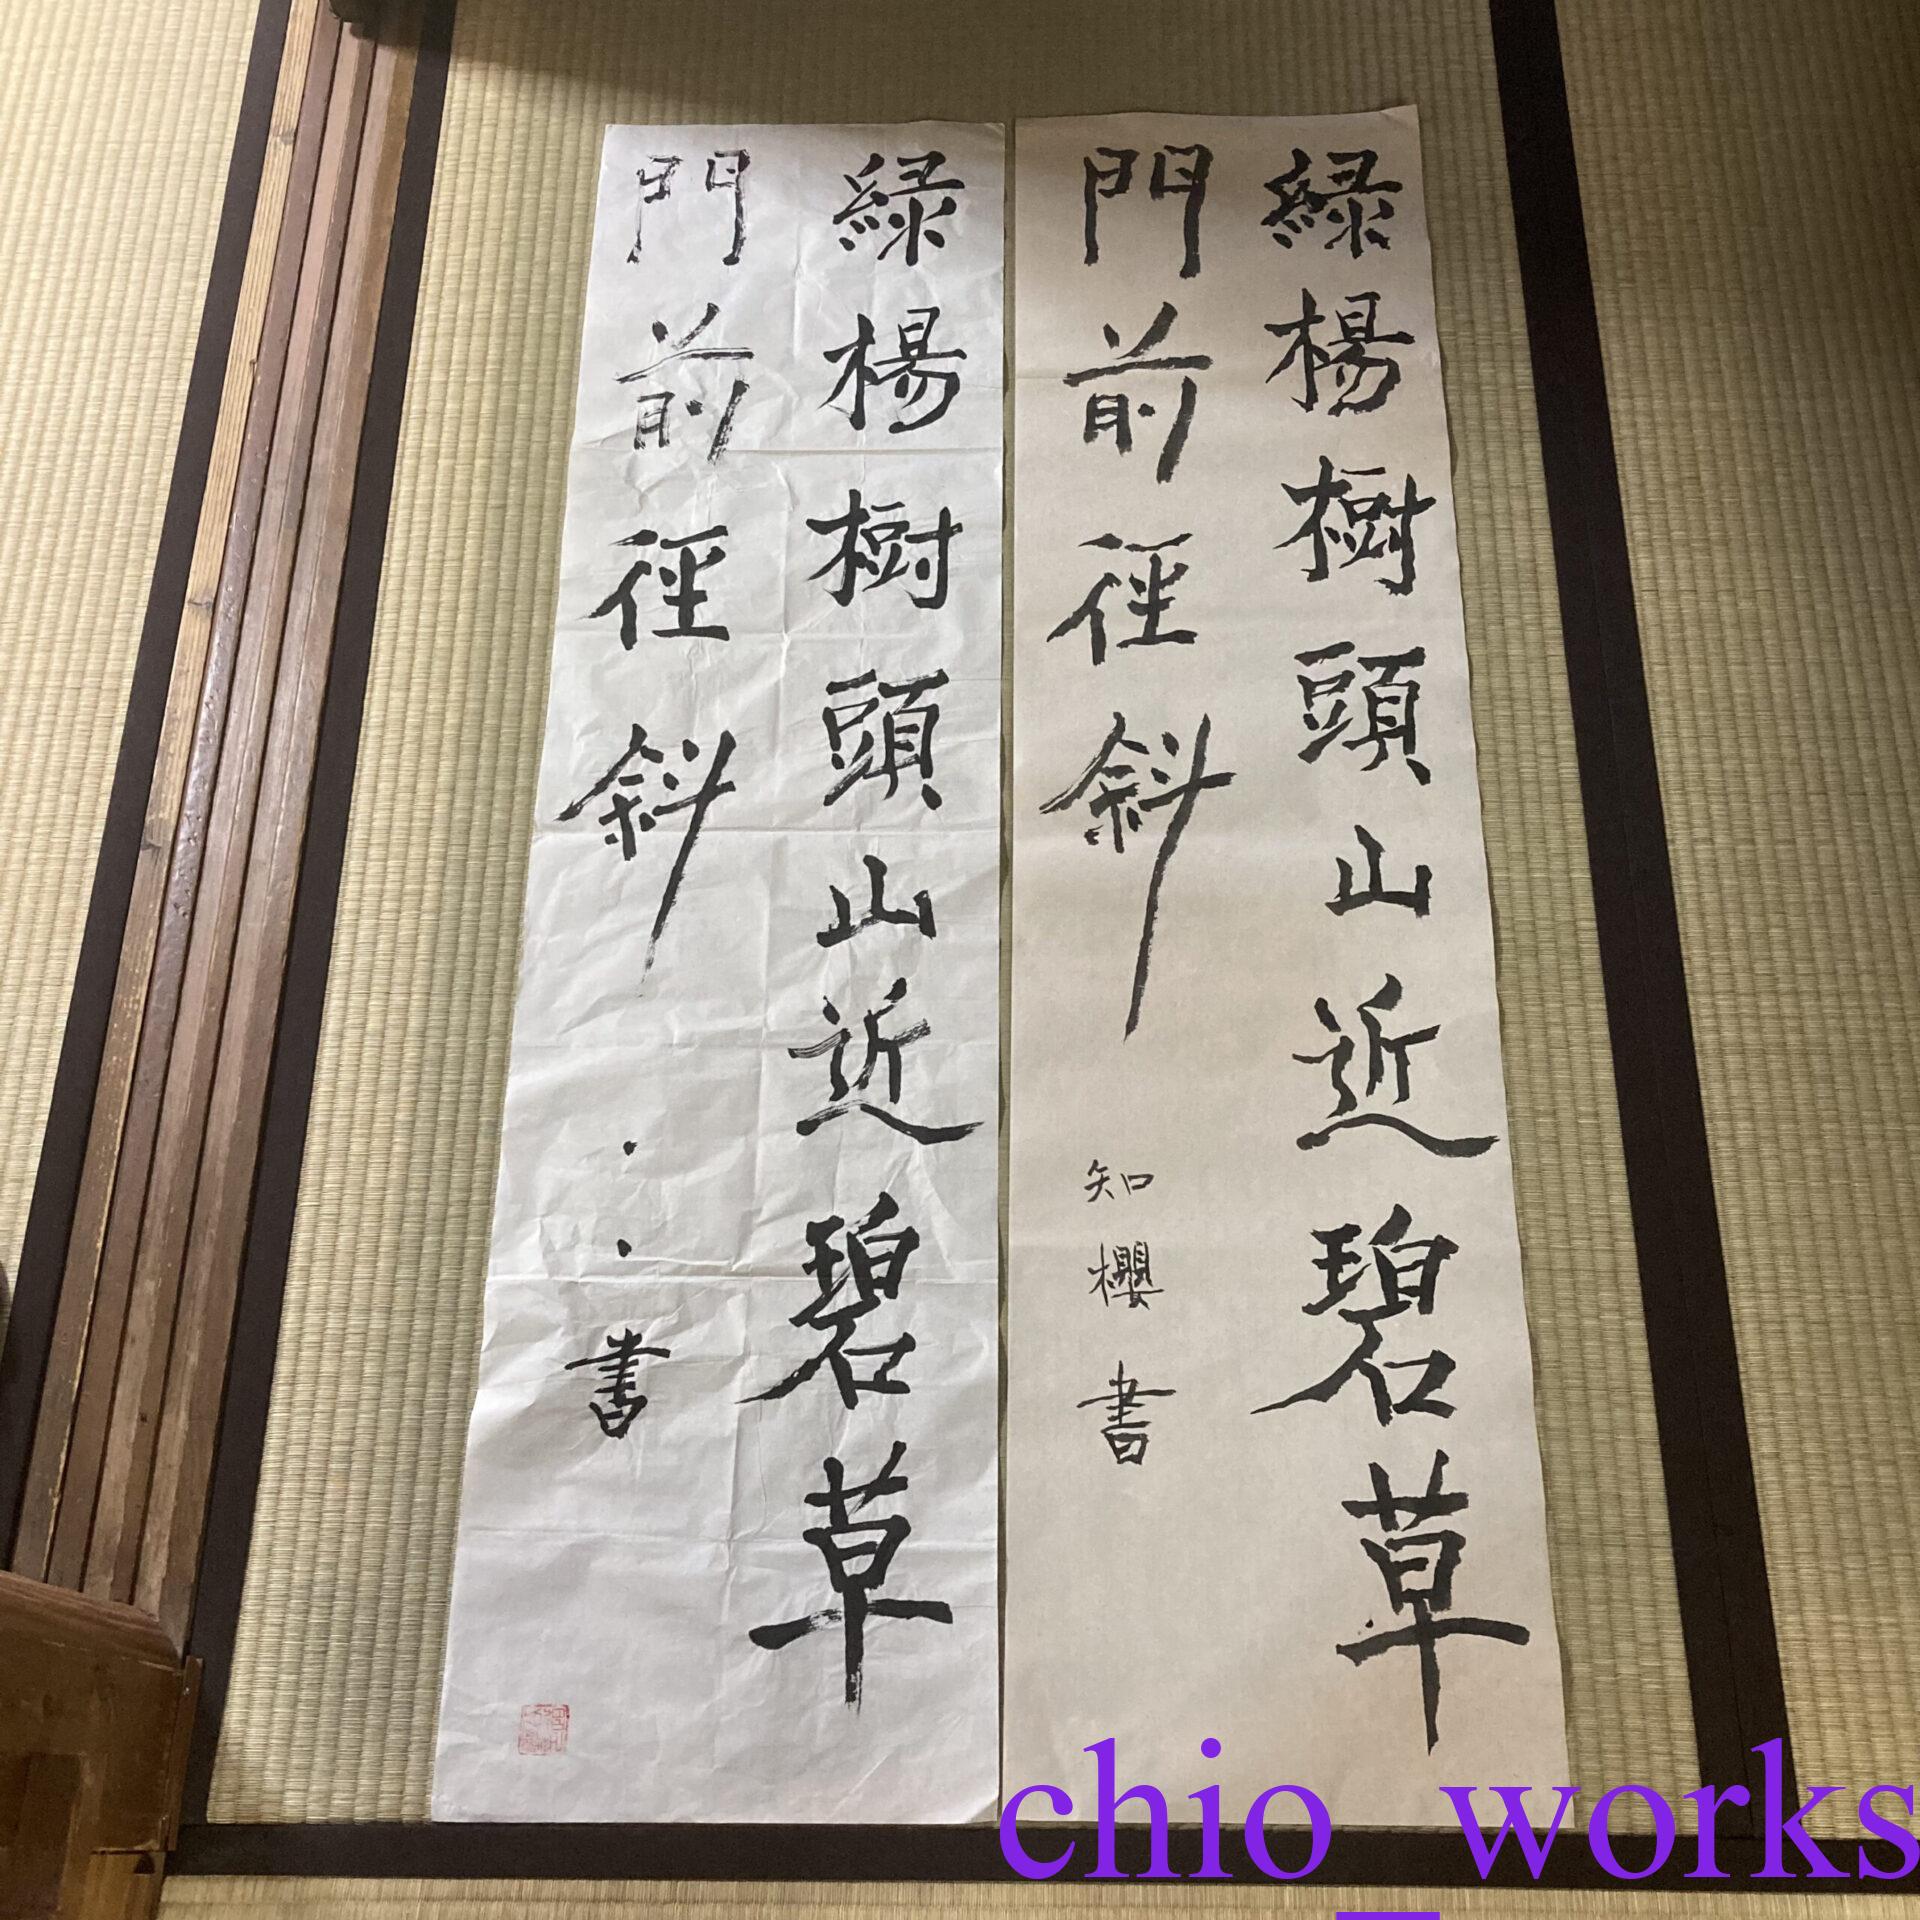 緑楊樹頭山近碧草
門前徑斜
知櫻書
緑楊樹頭山近碧草
門前徑斜
・・書
chio_works